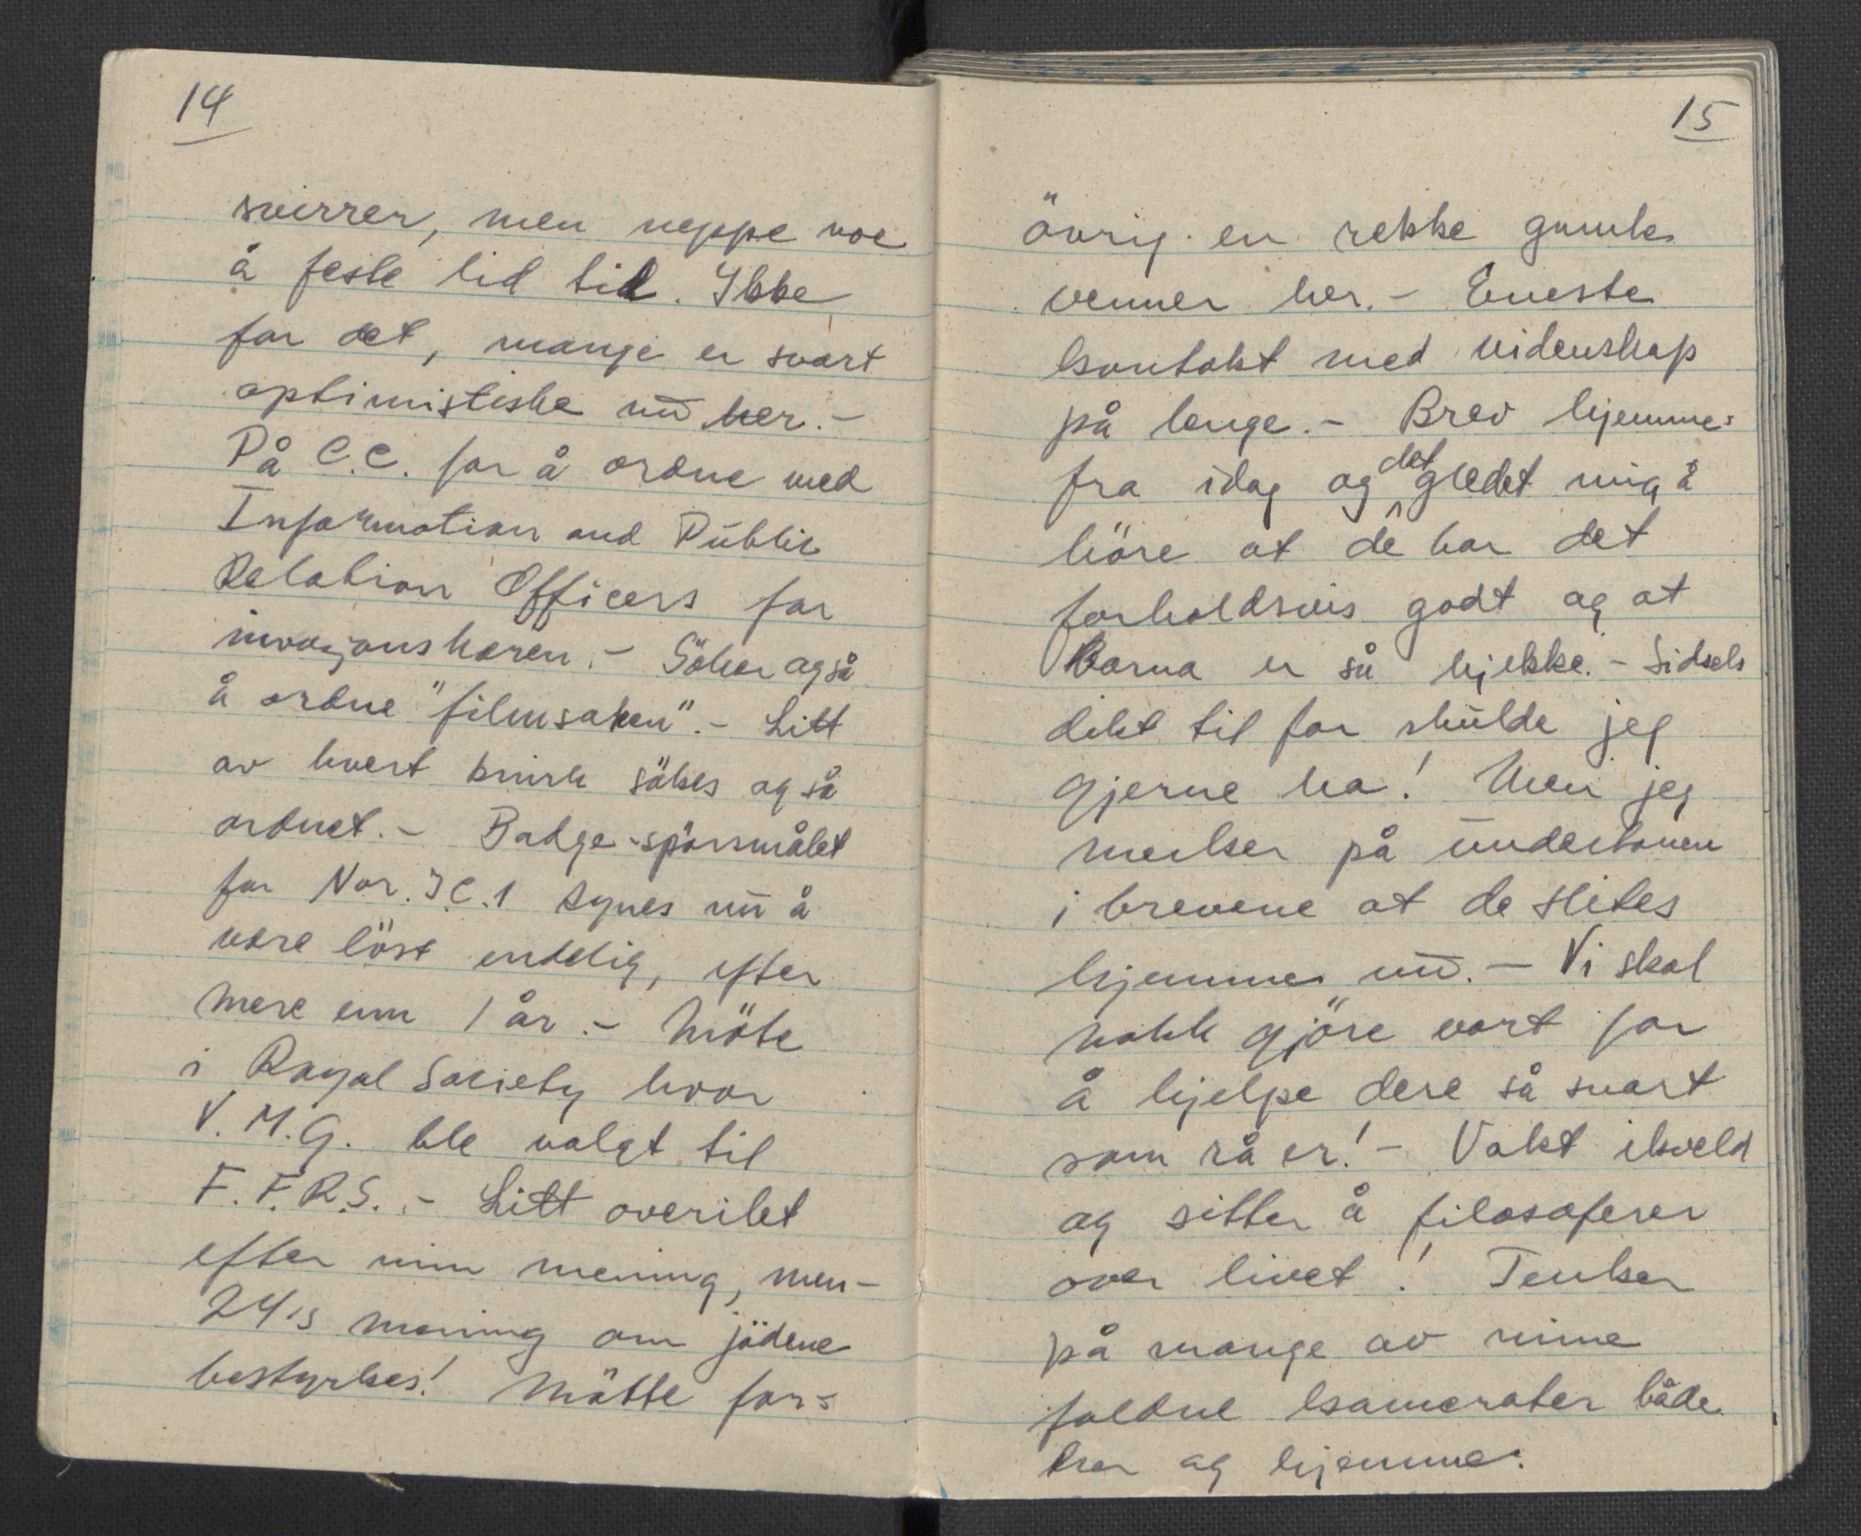 14
svirrer, men neppe noe
å feste lid til. Ikke
for det, mange er svært
optimistiske nū her. -
På C.C. for å ordne med
Information and Public
Relation Officers for
invasjonshæren. - Söker også
å ordne "filmsaken". - Litt
av hvert smårk sökes også
ordnet. - Badge-spörsmålet
for Nor. I.C.1 synes nū å
være löst endelig, efter
mere enn 1 år. - Möte
i Royal Society hvor
V.M.G. ble valgt til
F.F.R.S. - Litt overilet
efter min mening, men -
24's mening om jödene
bestyrkes! Mötte for=
15
övrig en rekke gamle
venner her. - Eneste
kontakt med videnskap
på lenge. - Brev hjemme=
fra idag og det gledet mig å
höre at de har det
forholdsvis godt og at
Barna er så kjekke. - Sidsels
dikt til far skulde jeg
gjerne ha! Men jeg
merker på undertonen
i brevene at de slites
hjemme nū. - Vi skal
nokk gjöre vort for
å hjelpe dere så svart
som rå er! - Vakt ikveld
og sitter å filosoferer
over livet! Tenker
på mange av mine
faldne kamerater både
her og hjemme.